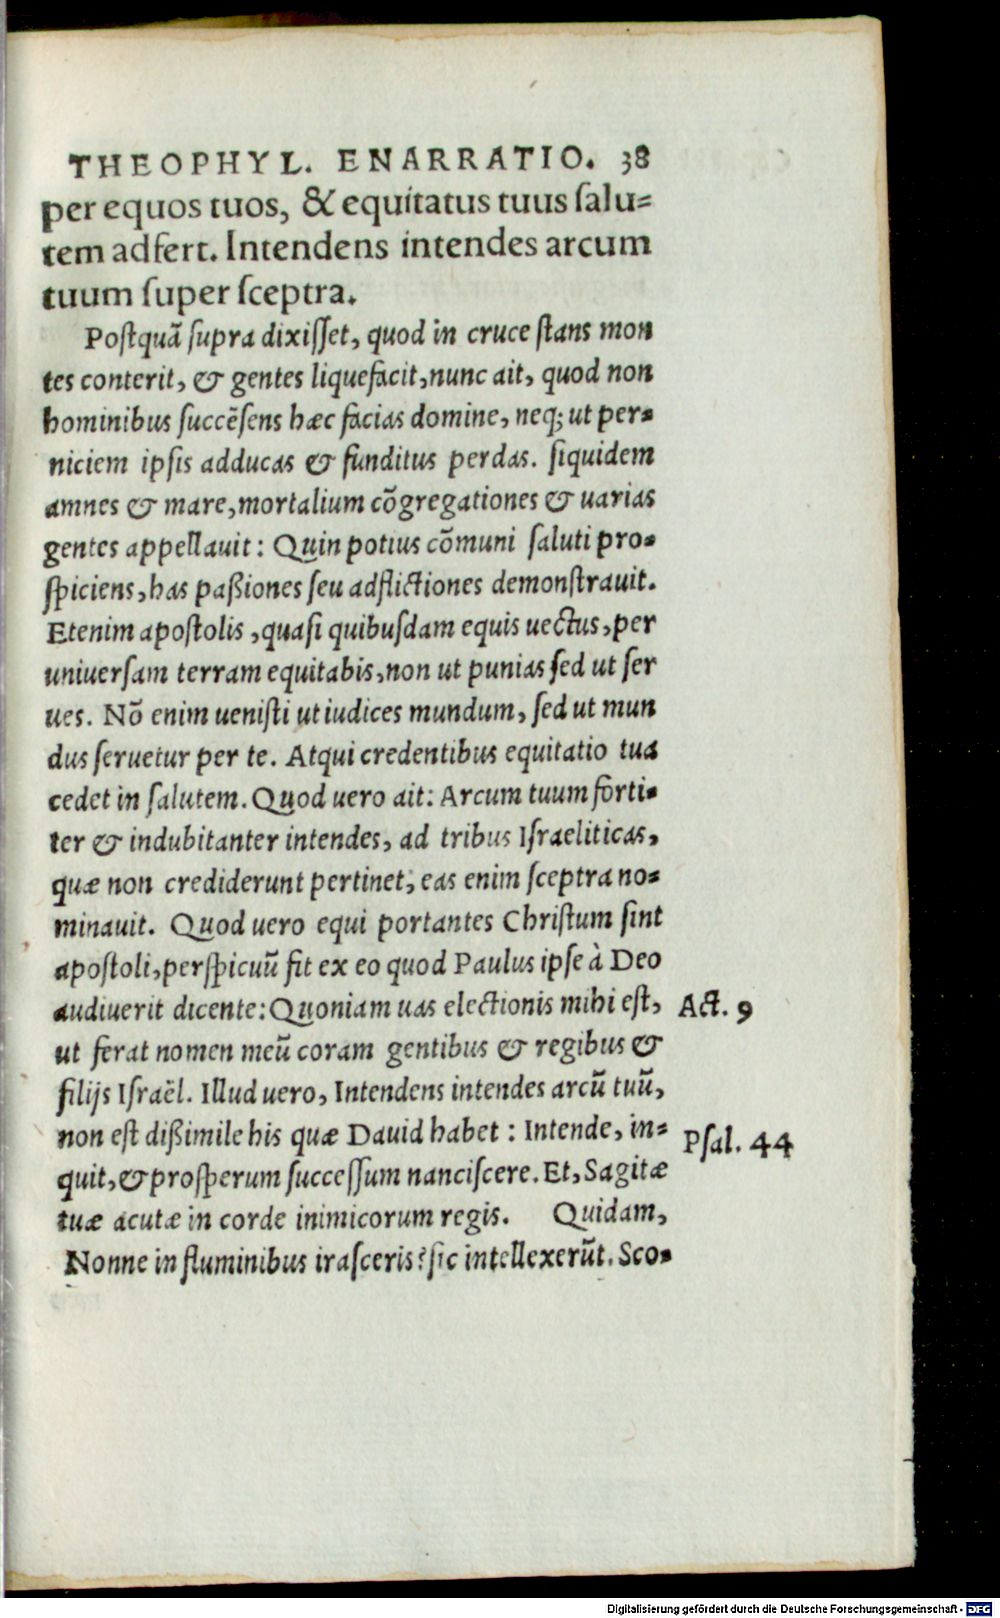 THEOPHYL. ENARRATIO. 38
per equos tuos, & equitatus tuus ſalu=
tem adfert. Intendens intendes arcum
tuum ſuper ſceptra.
Poſtquã ſupra dixiſſet, quod in cruce ſtans mon
tes conterit, & gentes liquefacit, nunc ait, quod non
hominibus ſuccẽſens hæc facias domine, neq; ut per=
niciem ipſis adducas & funditus perdas. ſiquidem
amnes & mare, mortalium cõgregationes & uarias
gentes appellauit: Quin potius cõmuni ſaluti pro=
ſpiciens, has paßiones ſeu adflictiones demonſtrauit.
Etenim apoſtolis, quaſi quibuſdam equis uectus, per
uniuerſam terram equitabis, non ut punias ſed ut ſer
ues. Nõ enim ueniſti ut iudices mundum, ſed ut mun
dus ſeruetur per te. Atqui credentibus equitatio tua
cedet in ſalutem. Quod uero ait: Arcum tuum forti=
ter & indubitanter intendes, ad tribus Iſraeliticas,
quæ non crediderunt pertinet, eas enim ſceptra no=
minauit. Quod uero equi portantes Chriſtum ſint
apoſtoli, perſpicuũ fit ex eo quod Paulus ipſe à Deo
audiuerit dicente: Quoniam uas electionis mihi eſt,
Act. 9
ut ferat nomen meũ coram gentibus & regibus &
filijs Iſraël. Illud uero, Intendens intendes arcũ tuũ,
non eſt dißimile his quæ Dauid habet: Intende, in=
Pſal. 44
quit, & proſperum ſucceſſum nanciſcere. Et, Sagitæ
tuæ acutæ in corde inimicorum regis. Quidam,
Nonne in fluminibus iraſceris? ſic intellexerũt. Sco=
Digitalisierung gefördert durch die Deutsche Forschungsgemeinschaft - DFG